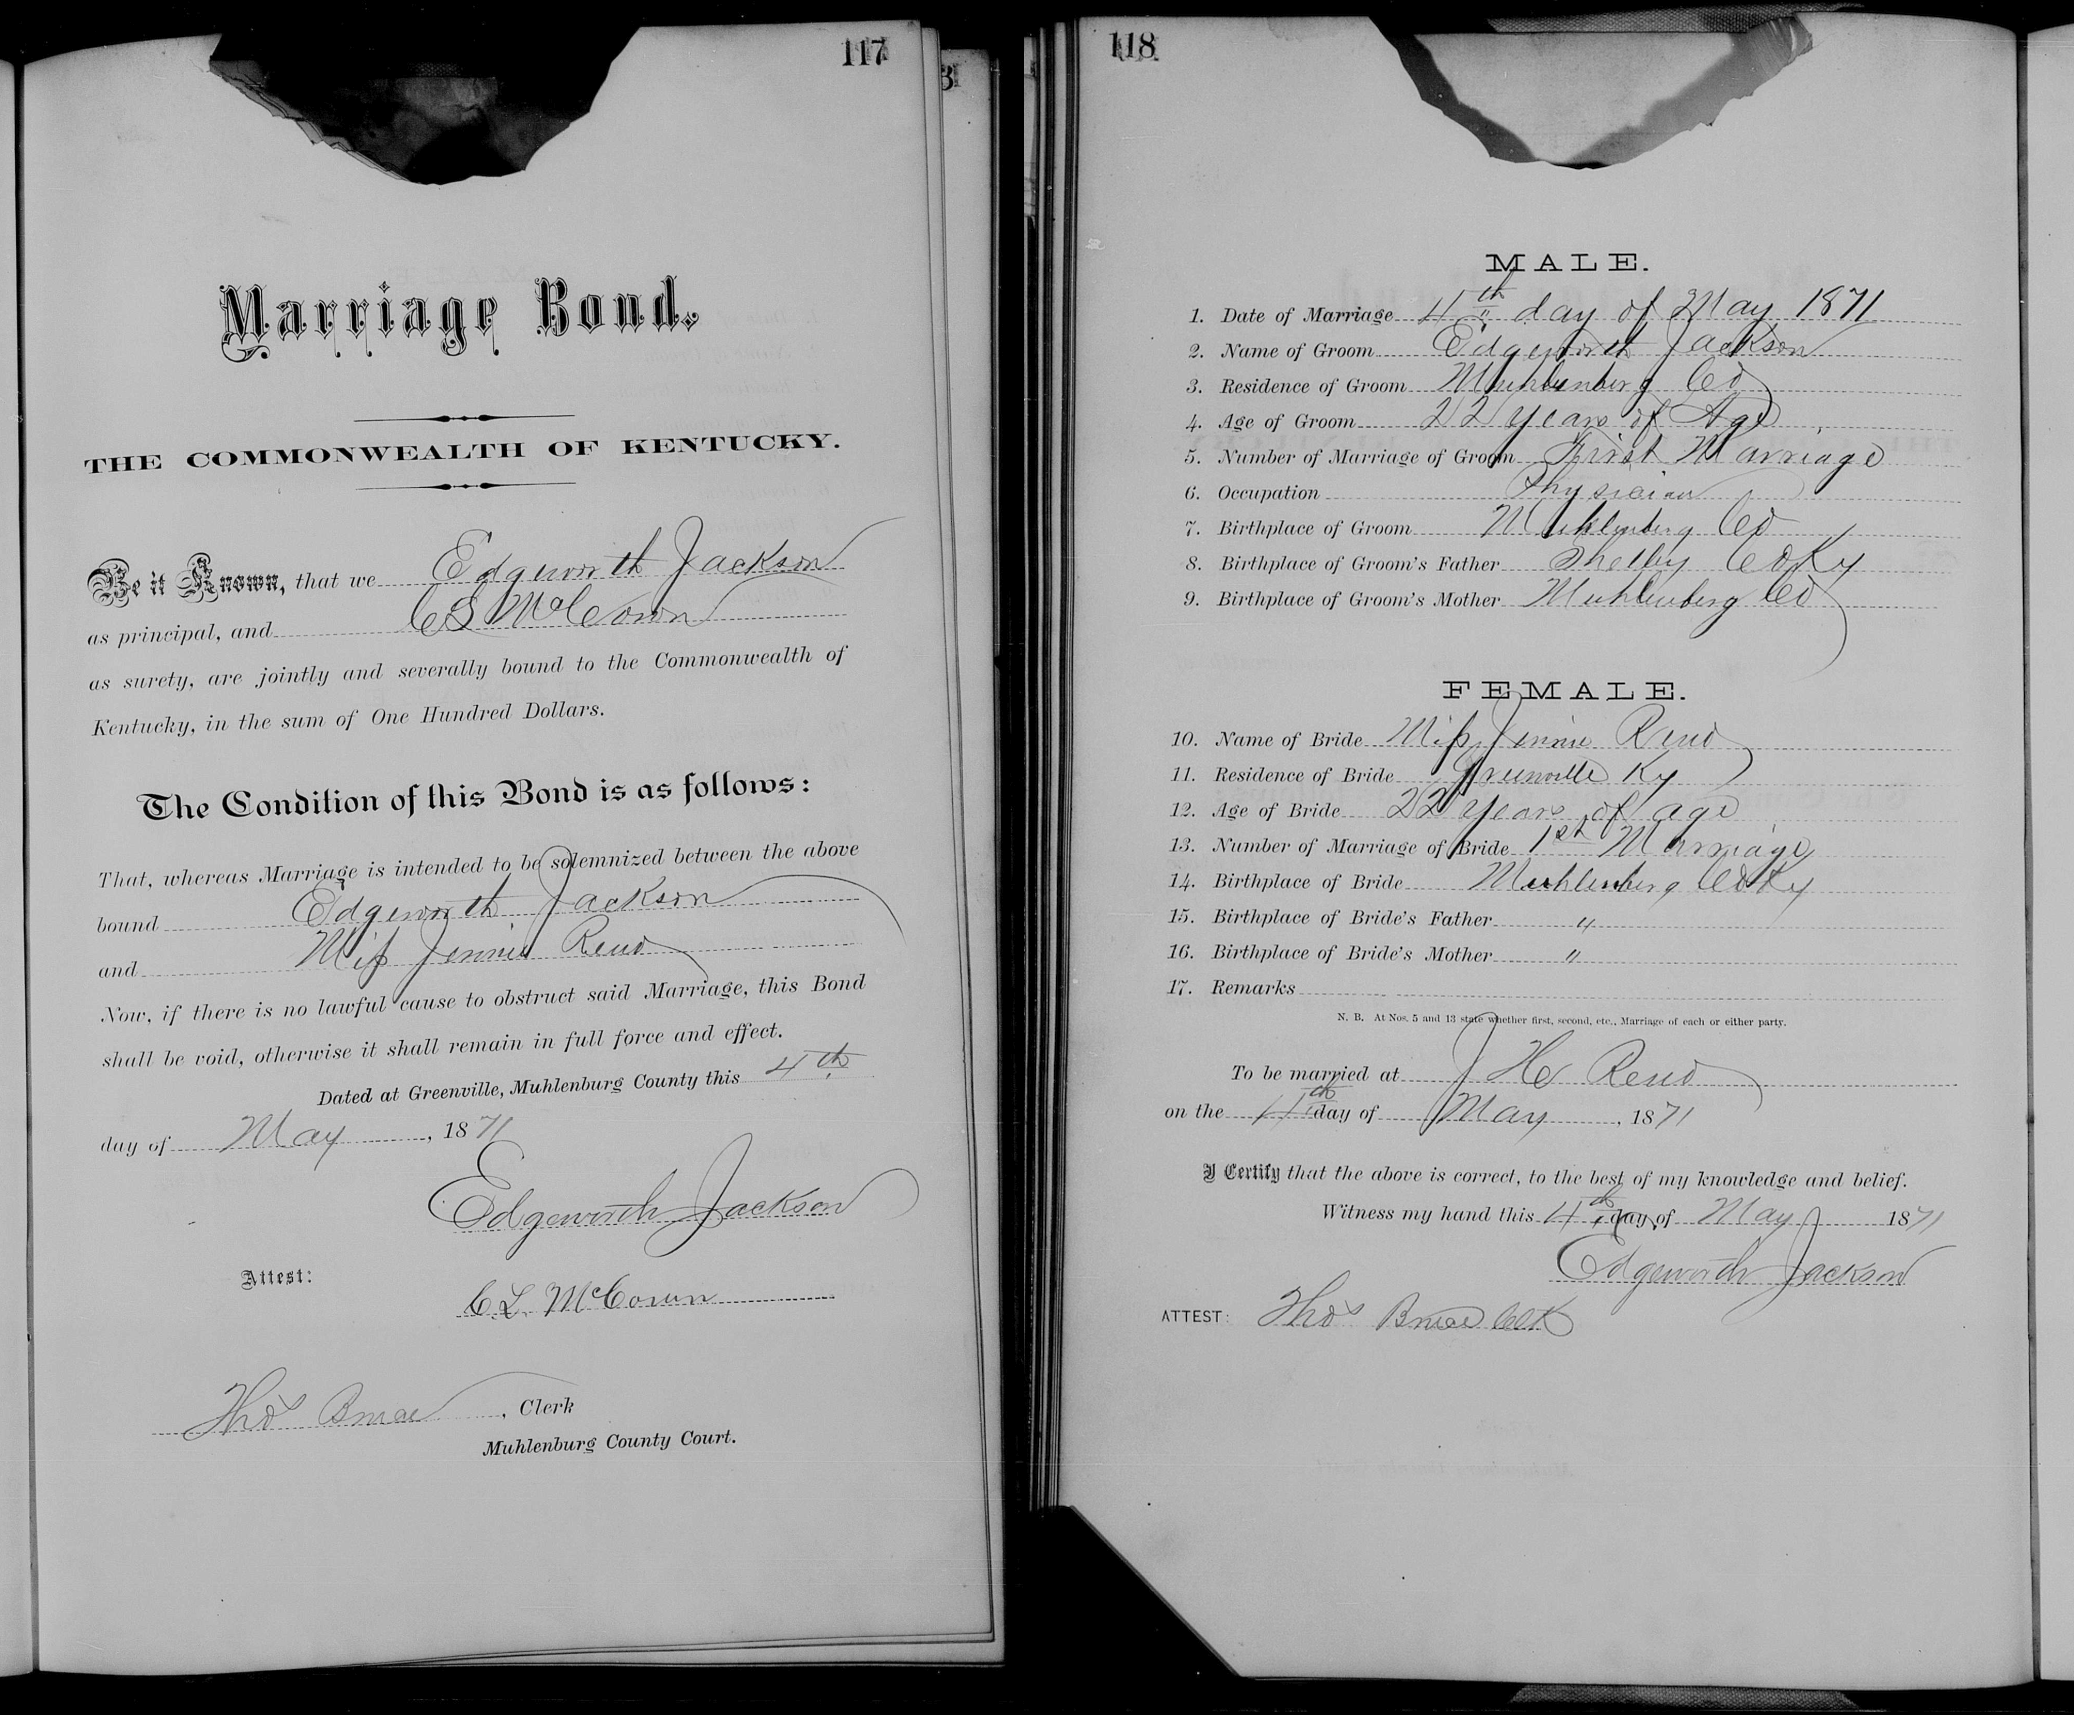 117
Marriage Bond.
THE COMMONWEALTH OF KENTUCKY.
Be it Known, that we Edgworth Jackson
as principal, and C L McCown
as surety, are jointly and severally bound to the Commonwealth of
Kentucky, in the sum of One Hundred Dollars.
The Condition of this Bond is as follows:
That, whereas Marriage is intended to be solemnized between the above
bound Edgeworth Jackson
and Miss Jennie Reno
Now, if there is no lawful cause to obstruct said Marriage, this Bond
shall be void, otherwise it shall remain in full force and effect.
Dated at Greenville, Muhlenburg County this 4th
day of May, 1871
Edgeworth Jackson
Attest:
C L McCown
Thos Bruce, Clerk
Muhlenburg County Court.
3
118
MALE.
1. Date of Marriage 4th day of May 1871
2. Name of Groom Edgeworth Jackson
3. Residence of Groom Muhlenberg Co
4. Age of Groom 22 years of Age
5. Number of Marriage of Groom First Marriage
6. Occupation Physician
7. Birthplace of Groom Muhlenberg Co
8. Birthplace of Groom's Father Shelby Co Ky
9. Birthplace of Groom's Mother Muhlenberg Co
FEMALE.
10. Name of Bride Miss Jennie Reno
11. Residence of Bride Greenville Ky
12. Age of Bride 22 years of age
13. Number of Marriage of Bride 1st Marriage
14. Birthplace of Bride Muhlenberg Co Ky
15. Birthplace of Bride's Father "
16. Birthplace of Bride's Mother "
17. Remarks
N. B. At Nos. 5 and 13 state whether first, second, etc., Marriage of each or either party.
To be married at J H Reno
on the 4th day of May, 1871
I Certify that the above is correct, to the best of my knowledge and belief.
Witness my hand this 4th day of May 1871
Edgeworth Jackson
ATTEST: Thos Bruce Clk